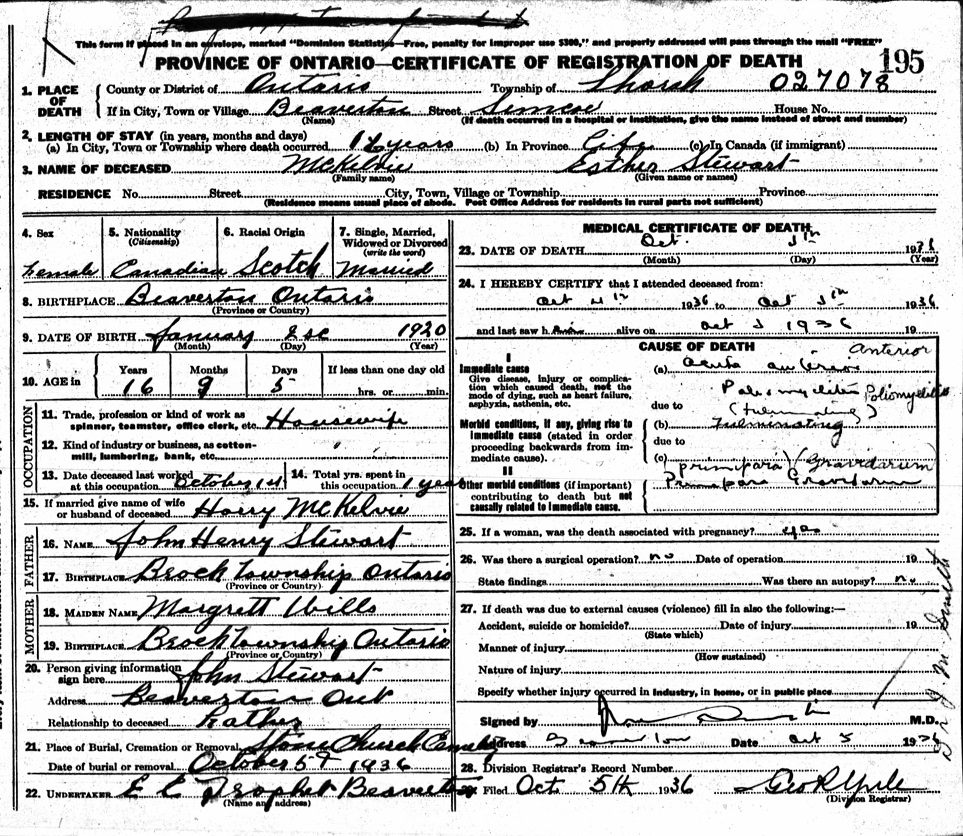 This form if placed in an envelope, marked "Dominion Statistics—Free, penalty for improper use $300," and properly addressed will pass through the mail "FREE"
PROVINCE OF ONTARIO—CERTIFICATE OF REGISTRATION OF DEATH 195
1. PLACE OF DEATH County or District of Ontario Township of Thorah 027078
If in City, Town or Village Beaverton Street Simcoe House No.
(Name) (If death occurred in a hospital or institution, give the name instead of street and number)
2. LENGTH OF STAY (in years, months and days)
(a) In City, Town or Township where death occurred 16 years (b) In Province Life (c) In Canada (if immigrant)
3. NAME OF DECEASED McKelvie Esther Stewart
(Family name) (Given name or names)
RESIDENCE No. Street City, Town, Village or Township Province
(Residence means usual place of abode. Post Office Address for residents in rural parts not sufficient)
4. Sex 5. Nationality (Citizenship) 6. Racial Origin 7. Single, Married, Widowed or Divorced (write the word)
Female Canadian Scotch Married
8. BIRTHPLACE Beaverton Ontario
(Province or Country)
9. DATE OF BIRTH January 1920
(Month) (Day) (Year)
10. AGE in Years Months Days If less than one day old
16 9 5 hrs. or min.
OCCUPATION
11. Trade, profession or kind of work as spinner, teamster, office clerk, etc. Housewife
12. Kind of industry or business, as cotton-mill, lumbering, bank, etc. "
13. Date deceased last worked at this occupation October 1st 14. Total yrs. spent in this occupation 1 year
15. If married give name of wife or husband of deceased Harry McKelvie
FATHER
16. NAME John Henry Stewart
17. BIRTHPLACE Brock Township Ontario
(Province or Country)
MOTHER
18. MAIDEN NAME Margrett Wills
19. BIRTHPLACE Brock Township Ontario
(Province or Country)
20. Person giving information sign here John Stewart
Address Beaverton Ont
Relationship to deceased Father
21. Place of Burial, Cremation or Removal Stone Church Cemetery
Date of burial or removal October 5th 1936
22. UNDERTAKER E C Prophet Beaverton
(Name and address)
MEDICAL CERTIFICATE OF DEATH
23. DATE OF DEATH Oct. 5th 1936
(Month) (Day) (Year)
24. I HEREBY CERTIFY that I attended deceased from:
Oct 4th 1936 to Oct 5th 1936
and last saw h alive on Oct 5 1936 19
CAUSE OF DEATH
I
Immediate cause
Give disease, injury or complication which caused death, not the mode of dying, such as heart failure, asphyxia, asthenia, etc.
(a) Acute anterior Anterior
due to Poliomyelitis Poliomyelitis
(fulminating)
Morbid conditions, if any, giving rise to immediate cause (stated in order proceeding backwards from immediate cause).
(b) Fulminating
due to
(c) primipara (Gravidarum)
II
Other morbid conditions (if important) contributing to death but not causally related to immediate cause.
Primipara Gravidarum
25. If a woman, was the death associated with pregnancy? yes
26. Was there a surgical operation? no Date of operation 19
State findings Was there an autopsy? no
27. If death was due to external causes (violence) fill in also the following:—
Accident, suicide or homicide? Date of injury 19
(State which)
Manner of injury
(How sustained)
Nature of injury
Specify whether injury occurred in industry, in home, or in public place
Signed by M.D.
Address Beaverton Date Oct 5 1936
28. Division Registrar's Record Number
29. Filed Oct 5th 1936 Geo R Yule
(Division Registrar)